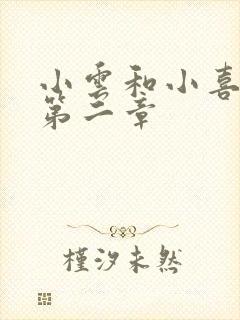 小雲和小喜
第二章
槿汐未然